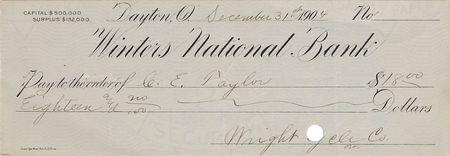 CAPITAL $500,000
SURPLUS $132,000
Dayton, O. December 31st 1904 No
Winters National Bank
Pay to the order of C. E. Taylor $18.00
Eighteen and no/100 Dollars
Wright Cycle Co.